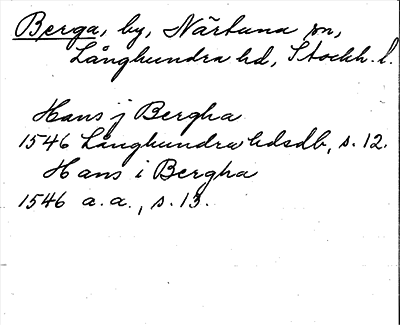 Berga, by, Närtuna sn,
Långhundra hd, Stockh. l.
Hans j Bergha
1546 Långhundra hdsdb, s. 12.
Hans i Bergha
1546 a.a., s. 13.